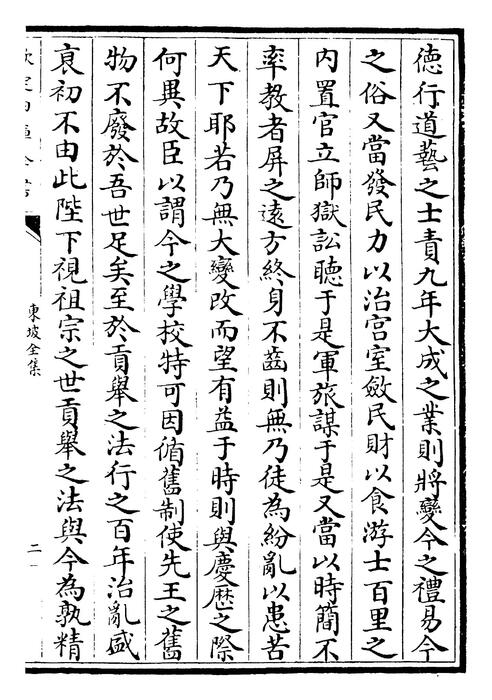 德行道藝之士責九年大成之業則將變今之禮易今
之俗又當發民力以治宫室斂民財以食游士百里之
内置官立師獄訟聽于是軍旅謀于是又當以時簡不
率教者屏之逺方終身不齒則無乃徒為紛亂以患苦
天下耶若乃無大變改而望有益于時則與慶厯之際
何異故臣以謂今之學校特可因循舊制使先王之舊
物不廢於吾世足矣至於貢舉之法行之百年治亂盛
衰初不由此陛下視祖宗之世貢舉之法與今為孰精
欽定四庫全書
東坡全集
二